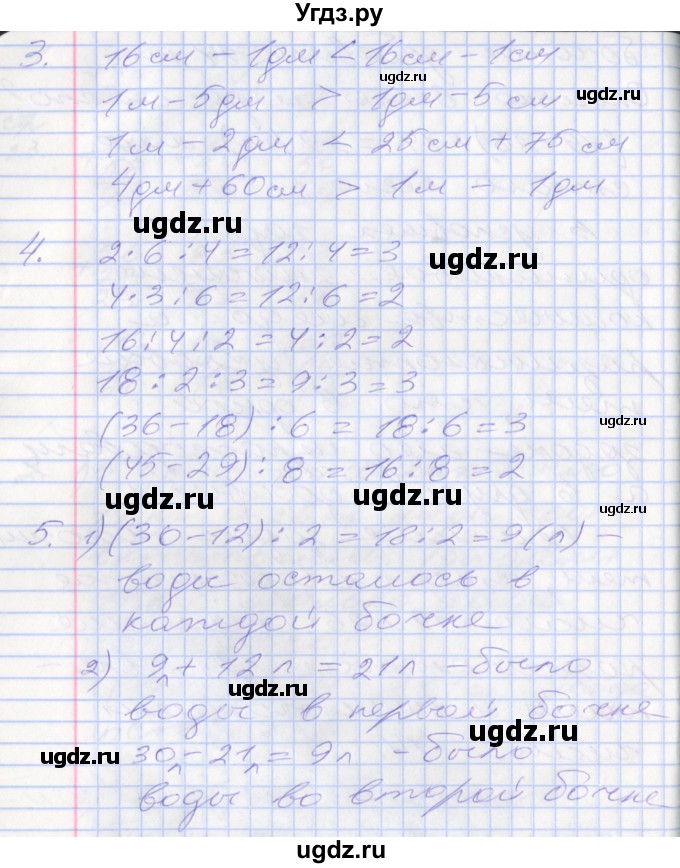 Угдз.ру
3. 16см - 1дм < 16см - 1см
1м - 5дм > 1дм - 5см
1м - 2дм < 25см + 75см
4дм + 60см > 1м - 1дм
4. 2·6:4=12:4=3
4·3:6=12:6=2
16:4:2=4:2=2
18:2:3=9:3=3
(36-18):6=18:6=3
(45-29):8=16:8=2
5. 1) (30-12):2=18:2=9(л) -
воды осталось в
каждой бочке
2) 9л + 12л = 21л - было
воды в первой бочке
30л - 21л = 9л - было
воды во второй бочке
ugdz.ru
ugdz.ru
ugdz.ru
ugdz.ru
ugdz.ru
ugdz.ru
ugdz.ru
ugdz.ru
ugdz.ru
ugdz.ru
ugdz.ru
ugdz.ru